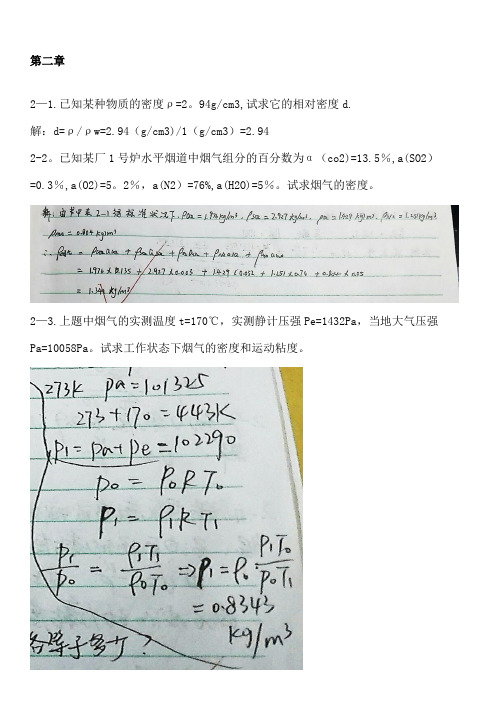 第二章
2—1.已知某种物质的密度ρ=2。94g/cm3,试求它的相对密度d.
解: d=ρ/ρw=2.94（g/cm3)/1（g/cm3）=2.94
2-2。已知某厂1号炉水平烟道中烟气组分的百分数为α（co2)=13.5％,a(SO2）
=0.3％,a(O2)=5。2％,a(N2）=76%,a(H2O)=5％。试求烟气的密度。
解: 由书中表2-1知标准状况下, ρ=1.976kg/m³, ρ=2.927kg/m³, ρ=1.429kg/m³, ρ=1.251kg/m³
ρ=0.804kg/m³
=1.976×0.135+2.927×0.003+1.429×0.052+1.251×0.76+0.804×0.05
=1.341kg/m³
2—3.上题中烟气的实测温度t=170℃，实测静计压强Pe=1432Pa，当地大气压强
Pa=10058Pa。试求工作状态下烟气的密度和运动粘度。
273K pa=101325
273+170=443K
P1=Pa+Pe=102290
P0=ρ0RT0
P1=ρ1RT1
P1/P0=ρ1T1/ρ0T0⇒ρ1=ρ0·P1T0/P0T1
=0.8343
kg/m³
各等于多少?